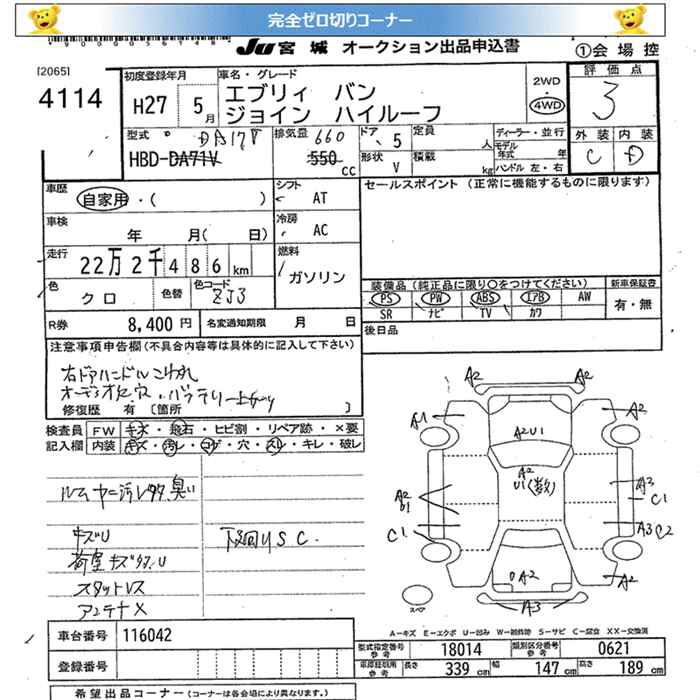 完全ゼロ切りコーナー
JU 宮城 オークション出品申込書
①会場控
[2065]
4114
初度登録年月
H27 5月
車名・グレード
エブリィ バン
ジョイン ハイルーフ
2WD
・
4WD
評価点
3
外装 内装
C D
型式 DA17V
HBD-DA71V
排気量 660
550 cc
ドア 5
形状 V
定員 人
積載 kg
ディーラー・並行
モデル年式 年
ハンドル 左・右
車歴
自家用・( )
シフト AT
セールスポイント (正常に機能するものに限ります)
車検
年 月( 日)
冷房 AC
走行
22万2千486km
燃料
ガソリン
色 クロ
色替
色コード ZJ3
装備品 (純正品に限り〇をつけてください)
新車保証書
PS PW ABS エアB AW
SR ナビ TV カワ
有・無
R券 8,400円
名変通知期限 月 日
後日品
注意事項申告欄 (不具合内容等は具体的に記入して下さい)
右ドアハンドルこわれ
修復歴 有 〔箇所 〕
検査員 FW キズ・飛石・ヒビ割・リペア跡・×要
記入欄 内装 キズ・汚レ・コゲ・穴・スレ・キレ・破レ
キズU
下回りSC.
スタットレス
アンテナX
A2
A2
A1
A2
A2U1
A2
U1(数)
A3
C1
A2
U1
C1
A3 C2
A2
A2
A3
スペア
A=キズ E=エクボ U=凹み W=補修跡 S=サビ C=腐食 XX=交換済
車台番号 116042
登録番号
型式指定番号 参考 18014
類別区分番号 参考 0621
長さ 339cm 幅 147cm 高さ 189cm
希望出品コーナー (コーナーは各会場により異なります。)